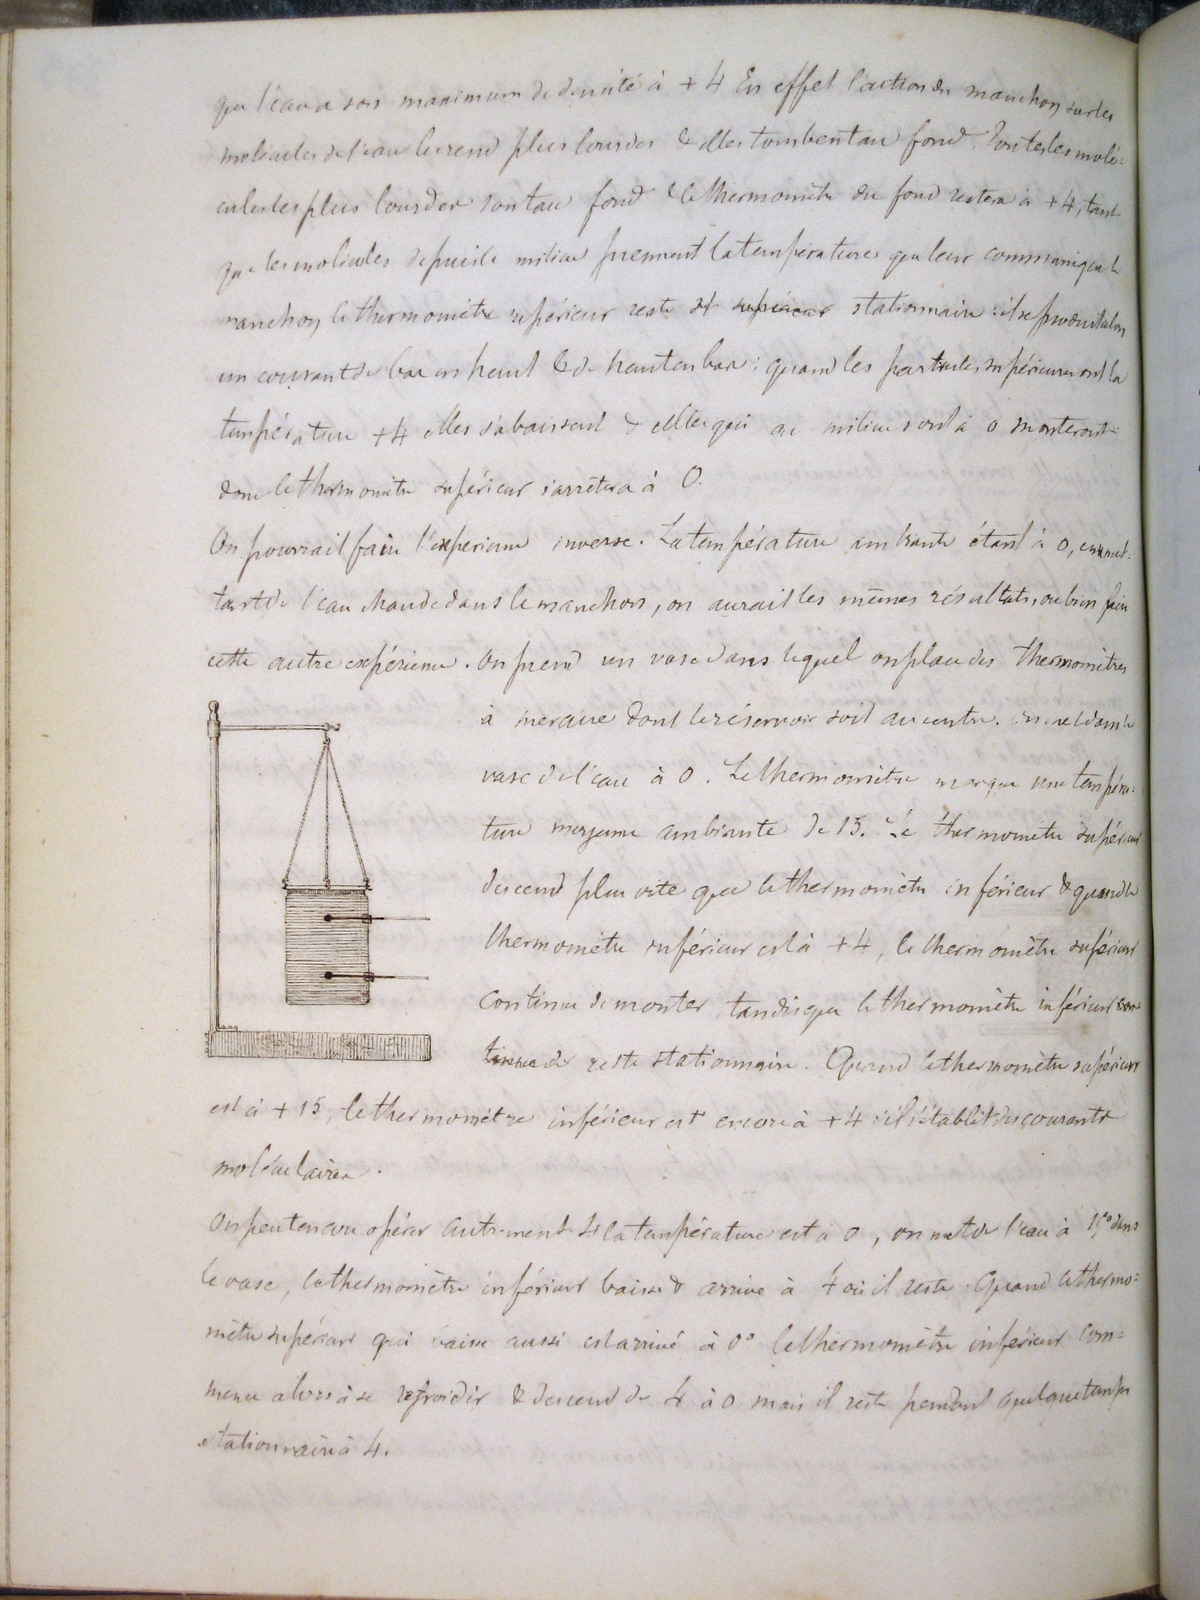 que l'eau a son maximum de densité à +4 En effet l'action du manchon sur les
molécules de l'eau les rend plus lourdes & elles tombent au fond. Toutes les molé=
cules les plus lourdes sont au fond & le thermomètre du fond restera à +4, tant
que les molécules depuis le milieu prennent la température que leur communique le
manchon le thermomètre supérieur reste st supérieur stationnaire : il se produit alors
un courant de bas en haut & de haut en bas : quand les particules supérieures ont la
température +4 elles s'abaissent & celles qui au milieu sont à 0 monteront
donc le thermomètre supérieur s'arrêtera à 0.
On pourrait faire l'expérience inverse. La température ambiante étant à 0, en met=
tant de l'eau chaude dans le manchon, on aurait les mêmes résultats, ou bien faire
cette autre expérience. On prend un vase dans lequel on place des thermomètres
à mercure dont le réservoir soit au centre. On met dans le
vase de l'eau à 0. Le thermomètre marque une tempéra=
ture moyenne ambiante de 15. Le thermomètre supérieur
descend plus vite que le thermomètre inférieur & quand le
thermomètre supérieur est à +4, le thermomètre supérieur
continue de monter, tandis que le thermomètre inférieur con
tinue de reste stationnaire. Quand le thermomètre supérieur
est à +15, le thermomètre inférieur est encore à +4 : il s'établit des courants
moléculaires.
On peut encore opérer autrement. Si la température est à 0, on met de l'eau à 15° dans
le vase, le thermomètre inférieur baisse & arrive à 4 où il reste. Quand le thermo=
mètre supérieur qui baisse aussi est arrivé à 0° le thermomètre inférieur com=
mence alors à se refroidir & descend de 4 à 0 mais il reste pendant quelque temps
stationnaire à 4.